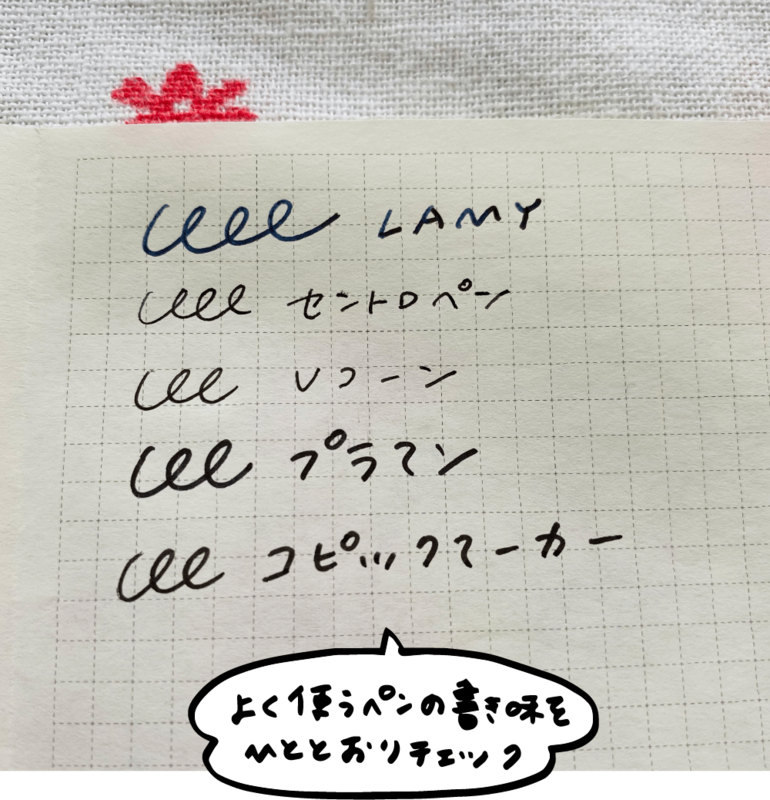 LAMY
セントロペン
Vコーン
プラマン
コピックマーカー
よく使うペンの書き味を
ひととおりチェック